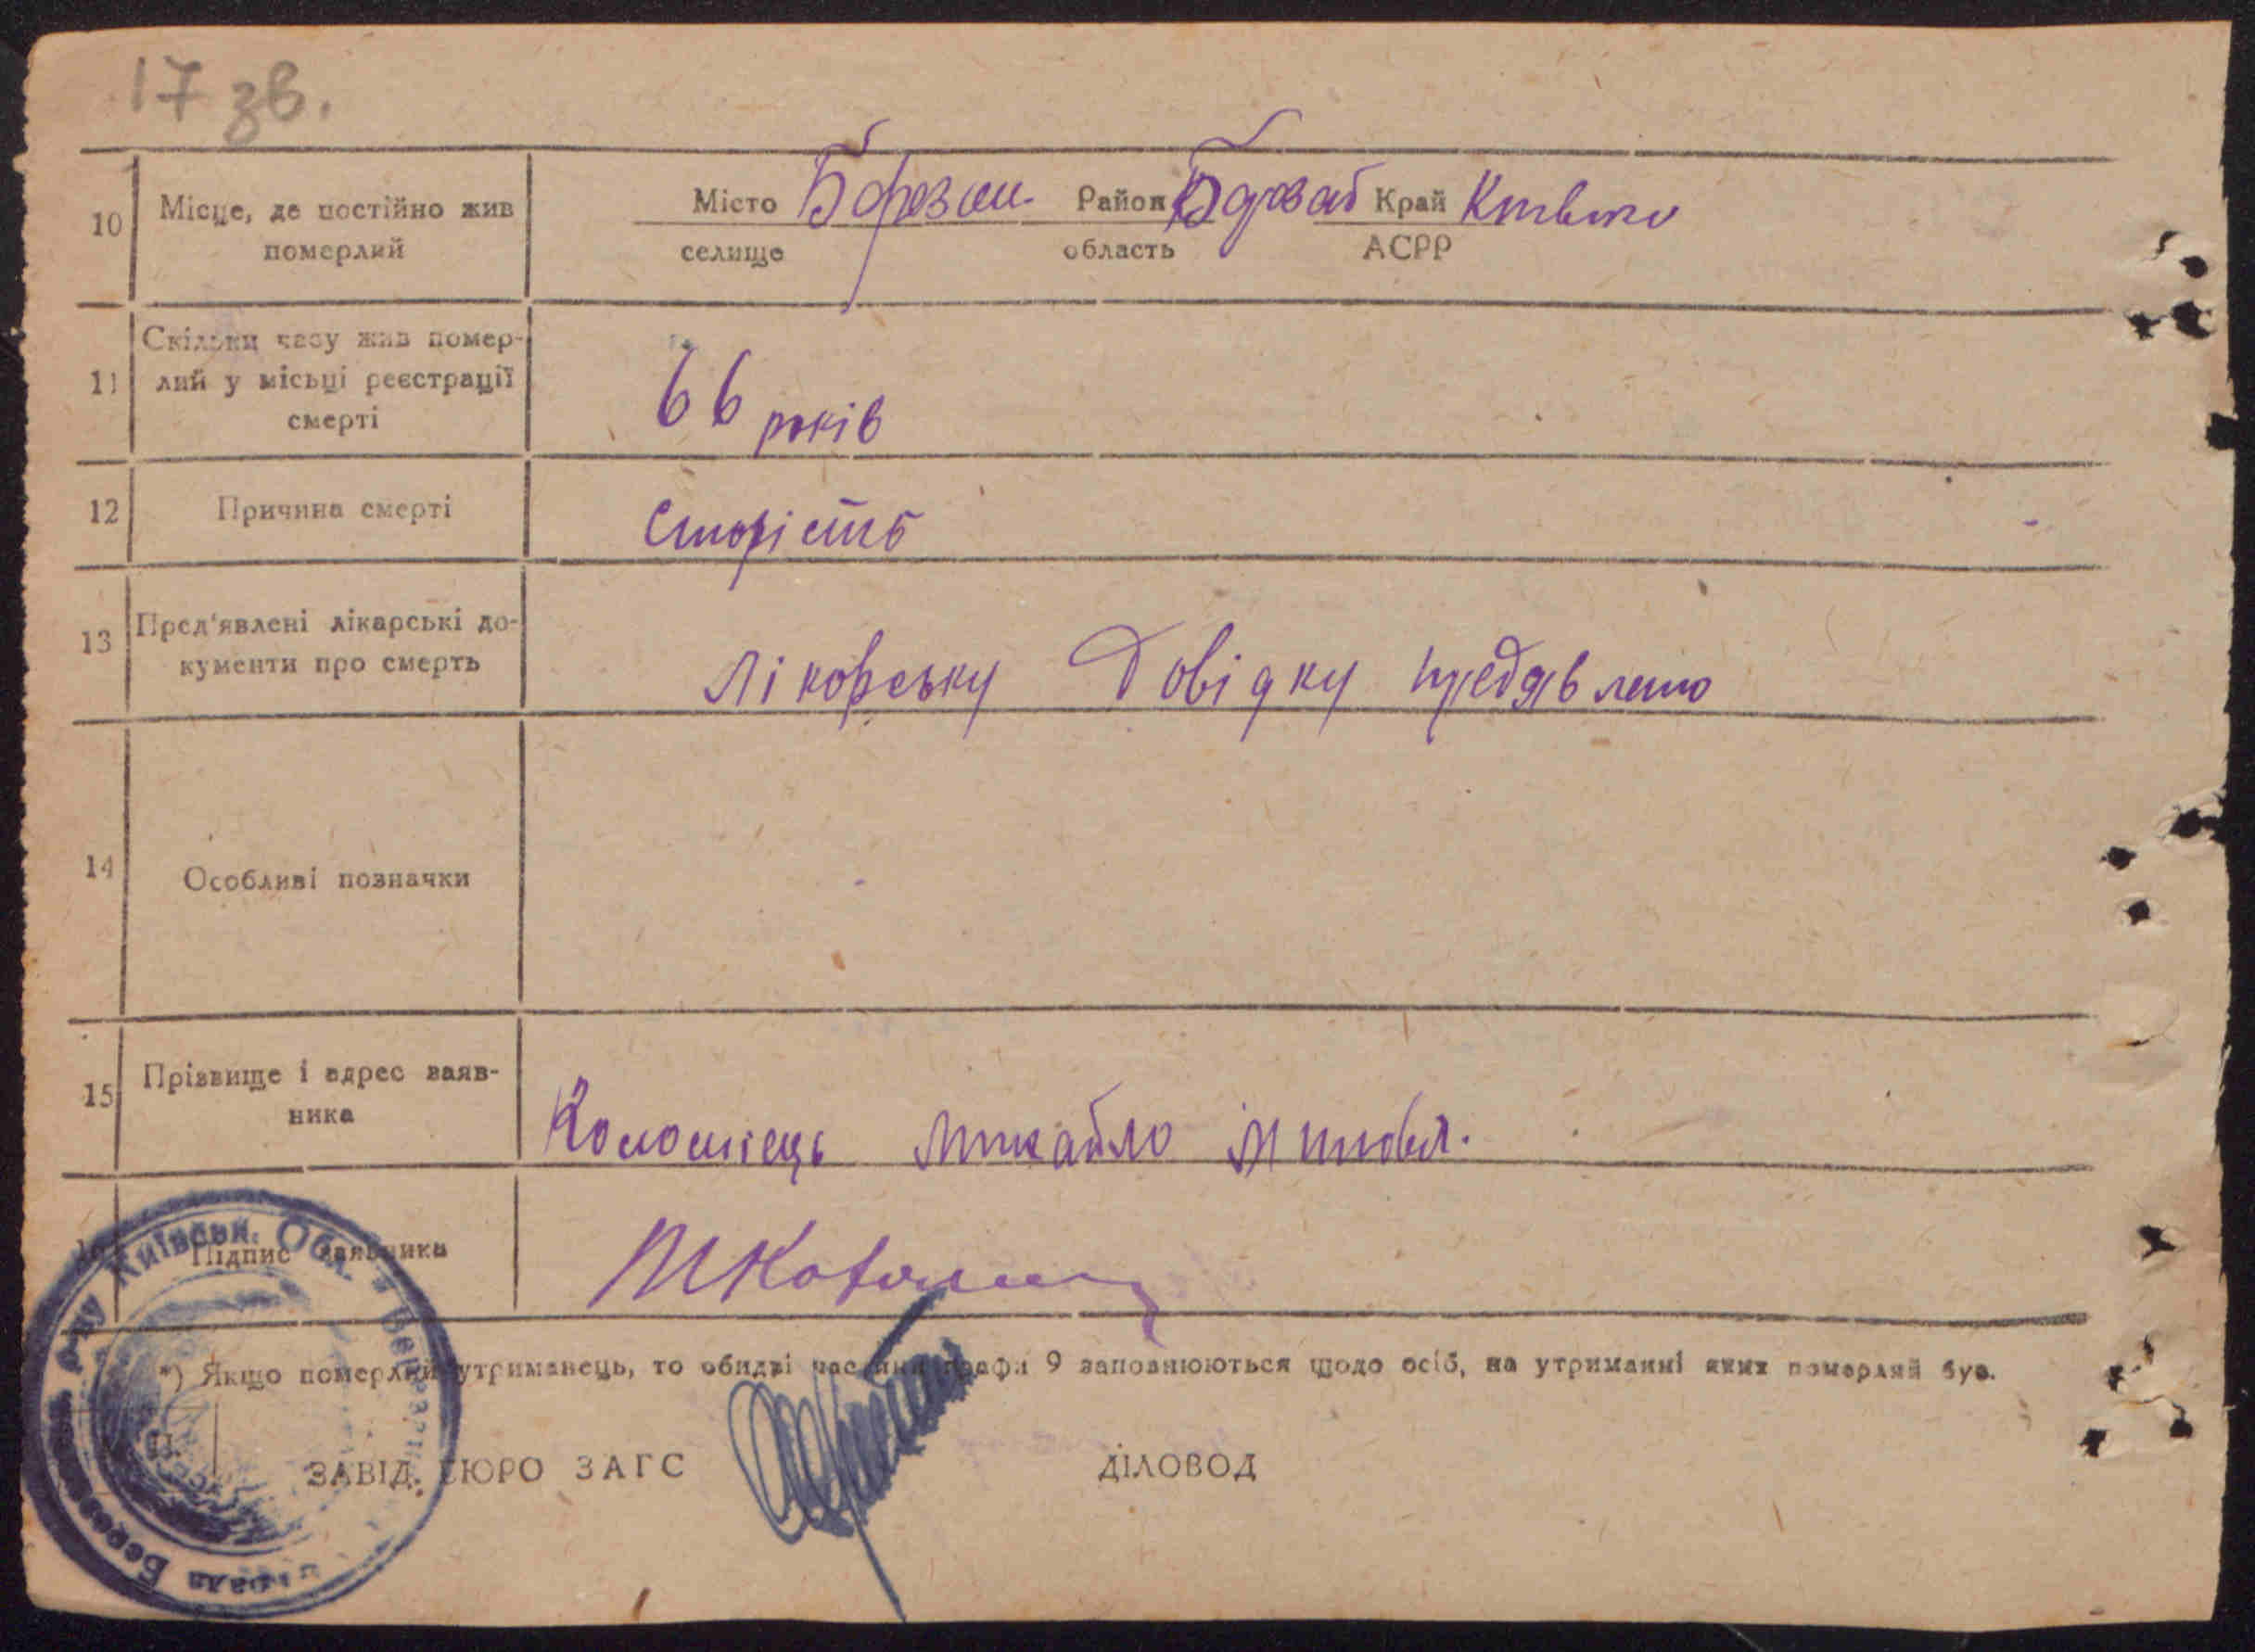 17 зв.
10 Місце, де постійно жив
померлий
Місто Район Край
селище область АСРР
Скільки часу жив помер-
11 лий у місьці реєстрації
смерті
66 років
12 Причина смерті старість
13 Пред'явлені лікарські до-
кументи про смерть
лікарську довідку предявлено
14 Особливі позначки
15 Прізвище і адрес заяв-
ника
Коломієць Михайло
Підпис заявника
*) Якщо померлий утриманець, то обидві частини графи 9 заповнюються щодо осіб, на утриманні яких померлий був.
ЗАВІД. БЮРО ЗАГС ДІЛОВОД
Київськ. Обл.